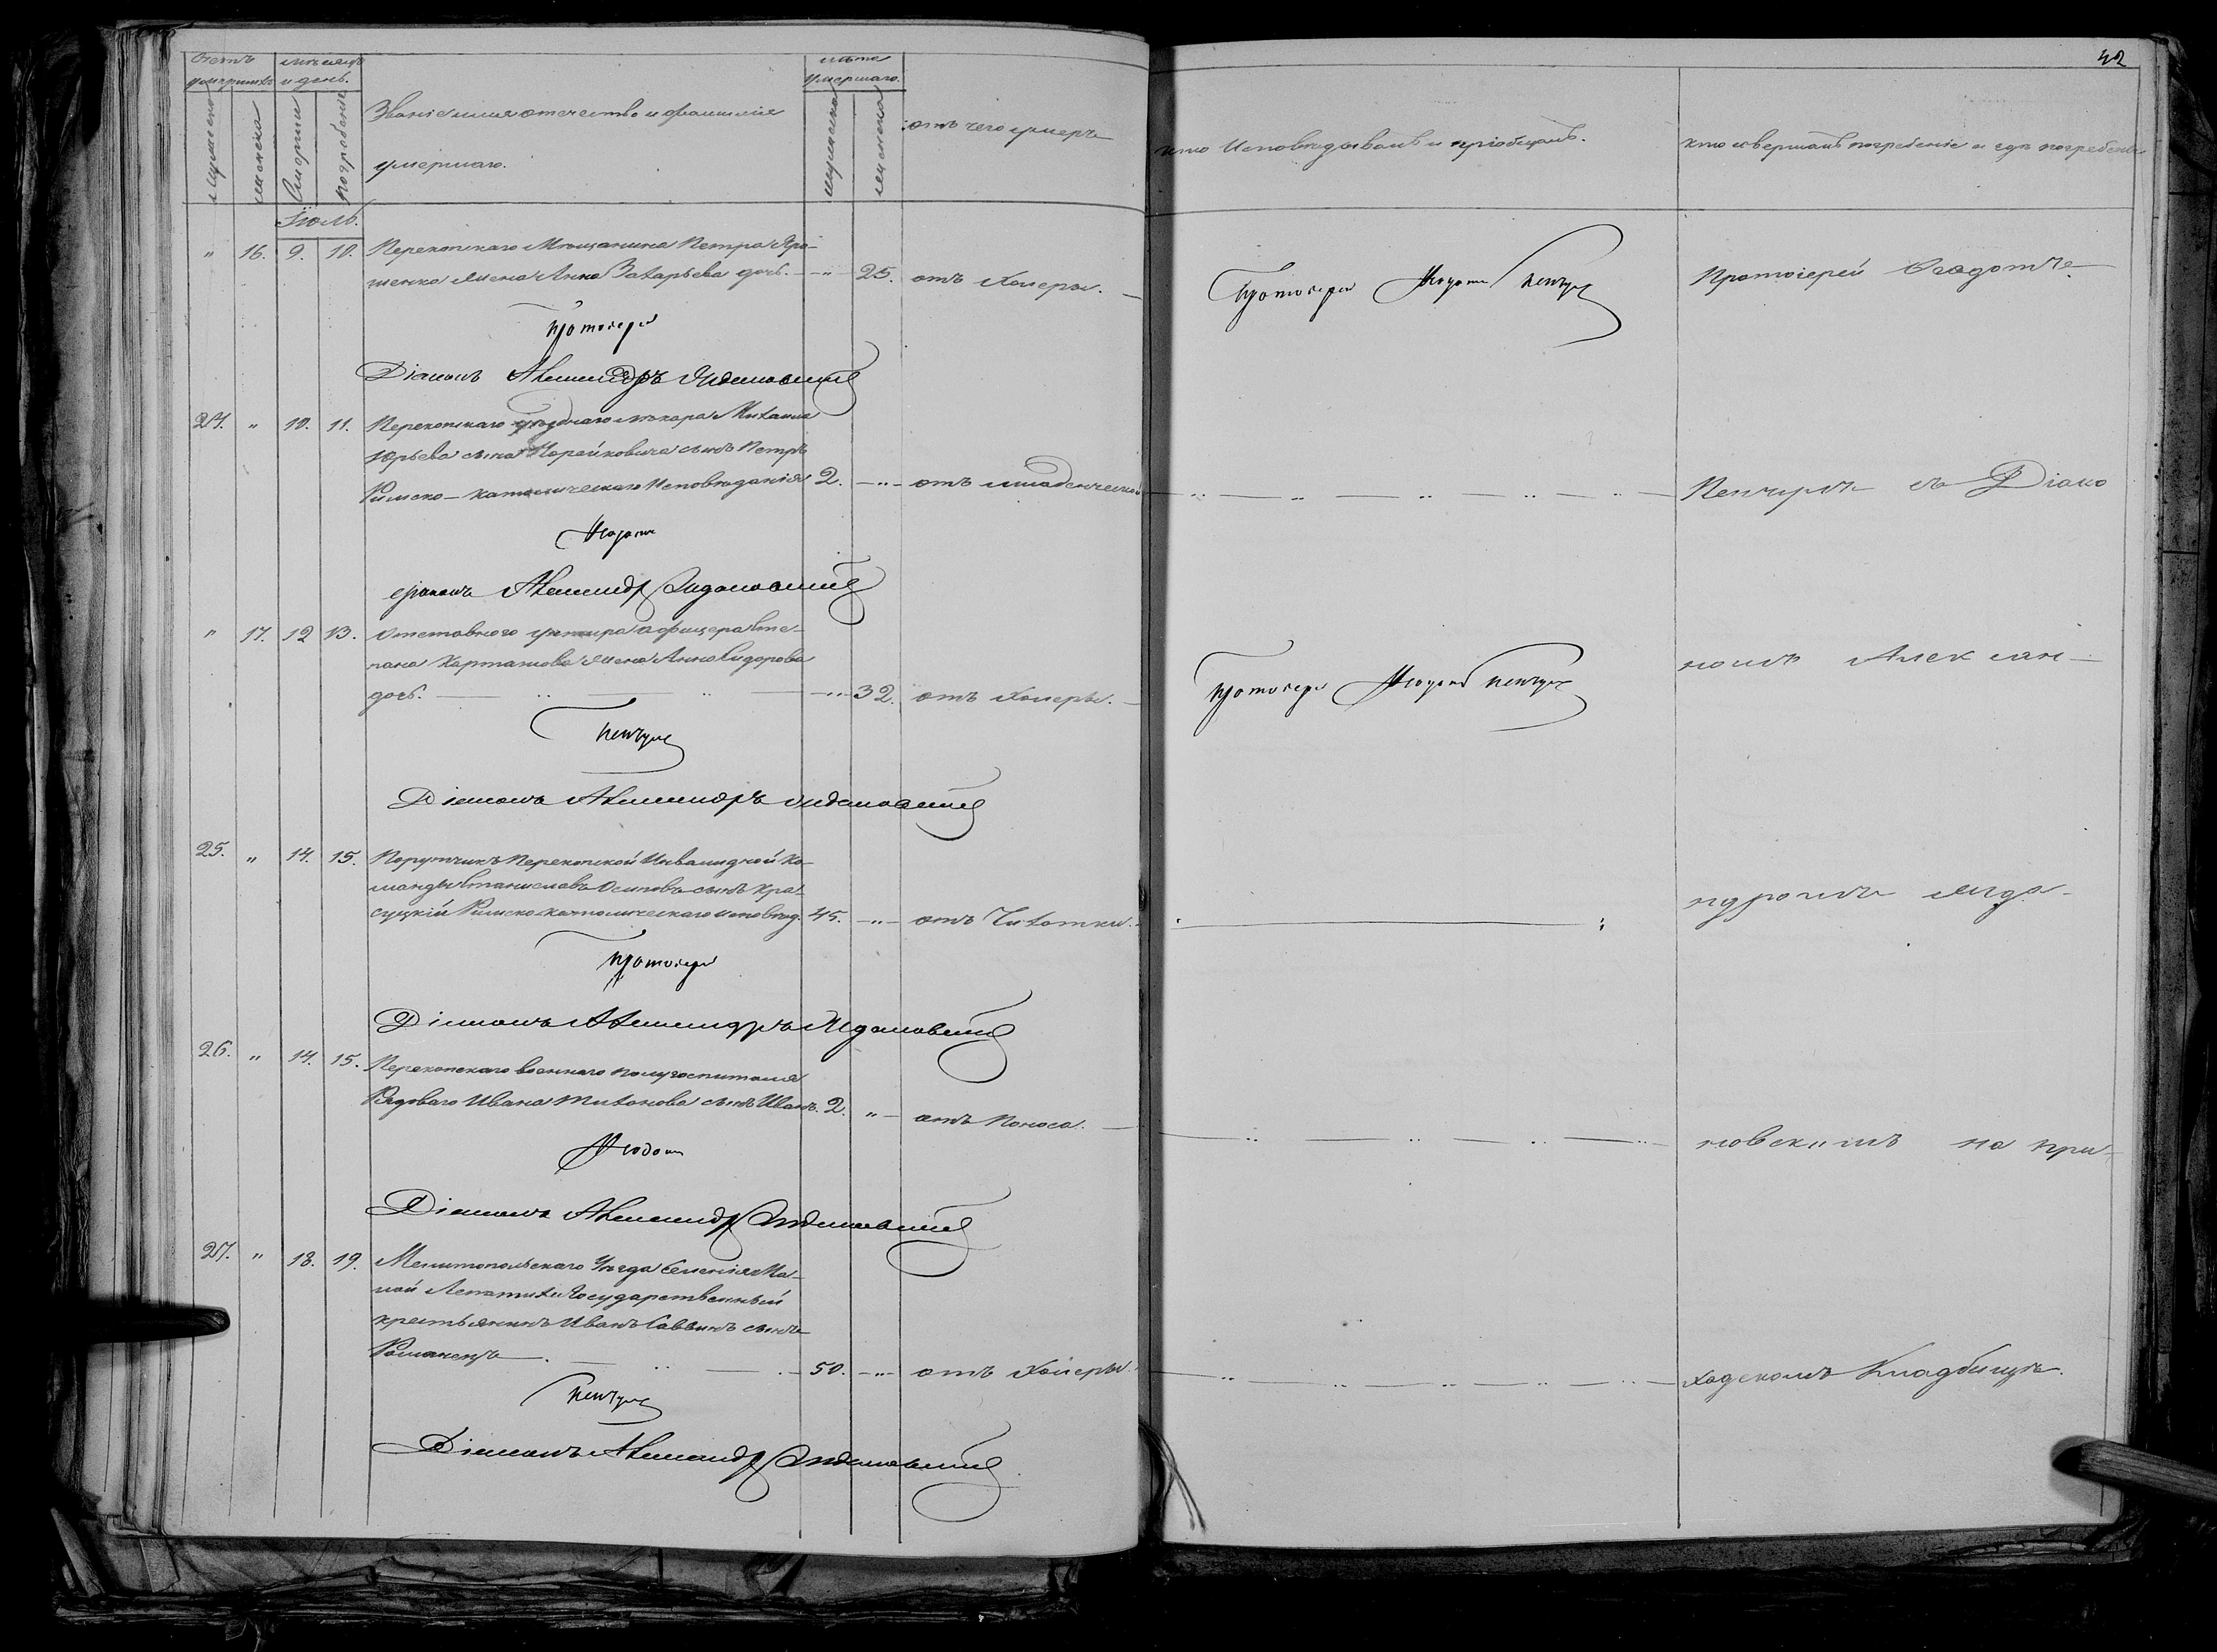 42
Счетъ умершихъ
мѣсяцъ и день.
Званіе имя отечество и фамилія
умершаго.
лѣта умершаго.
отъ чего умеръ
кто Исповѣдывалъ и пріобщалъ.
кто совершалъ погребеніе и гдѣ погребены
мужеска
женска
Смерти
погребенія
мужеска
женска
Іюль.
" 16. 9. 10. Перекопскаго Мѣщанина Петра Яро-
шенка жена Анна Захарьева дочь. — " — 25. отъ Холеры. —
Протоіерей
Протоіерей Ѳеодотъ
Діаконъ Александръ
24. " 10. 11. Перекопскаго уѣзднаго лѣкаря Михаила
Юрьева сына сынъ Петръ
Римско-католическаго Исповѣданія 2. — " — отъ младенческой
съ Діако
Ѳеодотъ
Діаконъ Александръ
" 17. 12 13. Отставного унтера офицера Сте-
пана Карташова жена Анна Сидорова
дочь. — " — 32. отъ Холеры. —
Протоіерей Ѳеодотъ
номъ Алексан-
Діаконъ Александръ
25. " 14. 15. Порутчикъ Перекопской Инвалидной Ко-
манды Станиславъ Осиповъ сынъ Кра-
суцкій Римско-католическаго исповѣд. 45. — " — отъ Чахотки.
дромъ
Протоіерей
Діаконъ Александръ
26. " 14. 15. Перекопскаго военнаго полугоспиталя
Рядоваго Ивана Тихонова сынъ Иванъ. 2. " — отъ Поноса. —
новскимъ на при-
Ѳеодотъ
Діаконъ Александръ
27. " 18. 19. Мелитопольскаго Уѣзда Селенія Ма-
лой Лепатихи Государственный
крестьянинъ Иванъ Саввинъ сынъ
Романенко — 50. — " — отъ Холеры.
ходскомъ Кладбищѣ.
Діаконъ Александръ